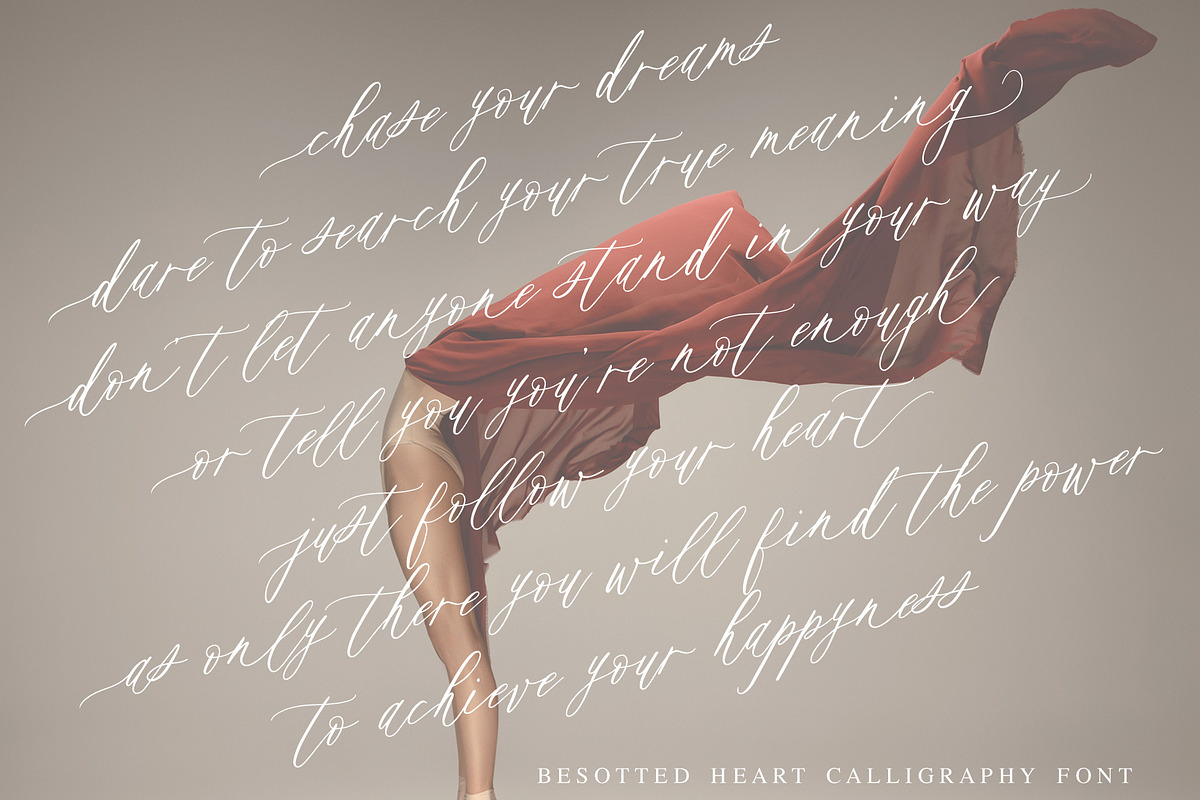 chase your dreams
dare to search your true meaning
don't let anyone stand in your way
or tell you you're not enough
just follow your heart
as only there you will find the power
to achieve your happyness
BESOTTED HEART CALLIGRAPHY FONT